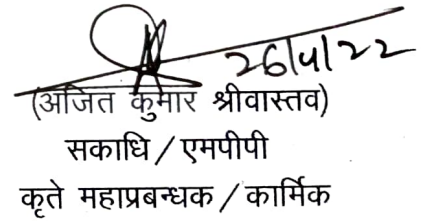 26/4/22
(अजित कुमार श्रीवास्तव)
सकाधि / एमपीपी
कृते महाप्रबन्धक / कार्मिक